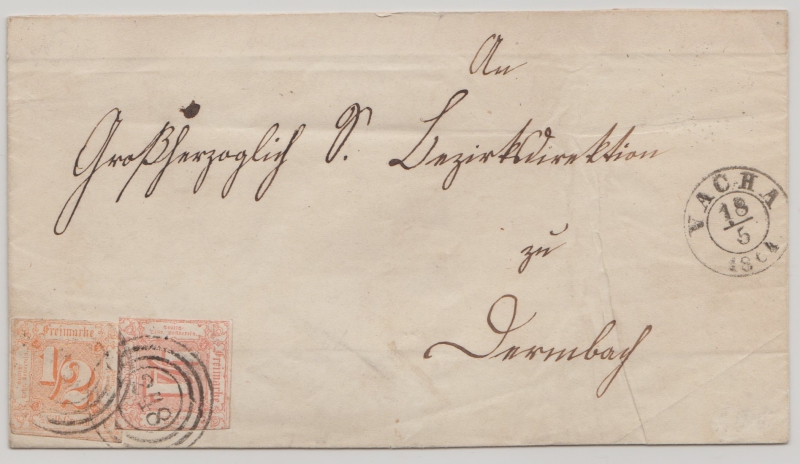 An
Großherzoglich S. Bezirksdirektion
zu
Dermbach
VACHA
18/5
1864
Freimarke
1/2
Freimarke
1